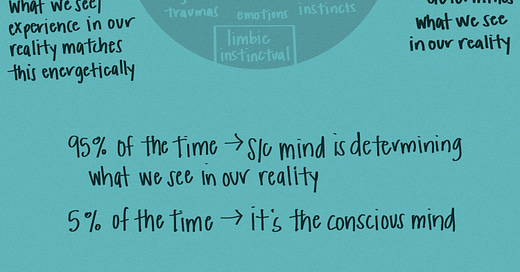 what we see/
experience in our
reality matches
this energetically
traumas emotions instincts
limbic
instinctual
what we see
in our reality
95% of the time → s/c mind is determining
what we see in our reality
5% of the time → it's the conscious mind